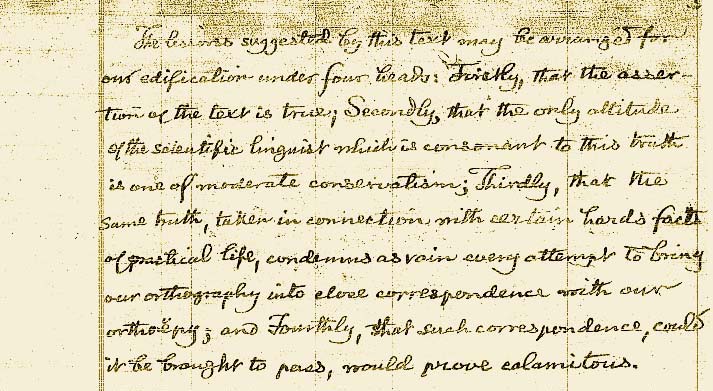 The lessons suggested by this text may be arranged for
our edification under four heads: Firstly, that the asser-
tion of the text is true; Secondly, that the only attitude
of the scientific linguist which is consonant to this truth
is one of moderate conservatism; Thirdly, that the
same truth, taken in connection with certain hard facts
of practical life, condemns as vain every attempt to bring
our orthography into close correspondence with our
orthoëpy; and Fourthly, that such correspondence, could
it be brought to pass, would prove calamitous.